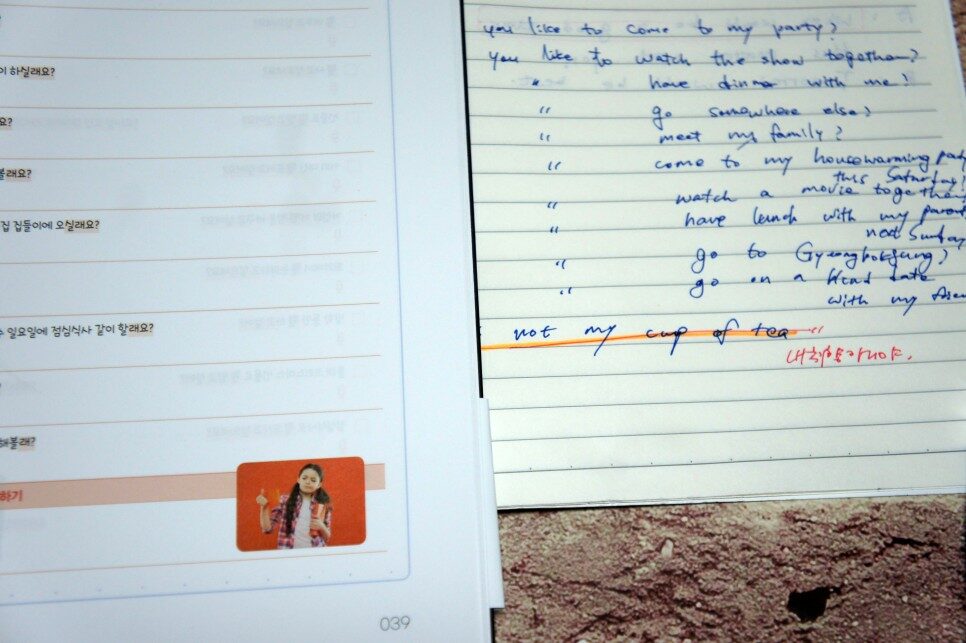 이 하실래요?
요?
볼래요?
집 집들이에 오실래요?
일요일에 점심식사 같이 할래요?
해볼래?
하기
039
you like to come to my party?
you like to watch the show together?
" have dinner with me?
" go somewhere else?
" meet my family?
" come to my housewarming party
this Saturday?
" watch a movie together
" have lunch with my parent
next Sunday
" go to Gyeongbokgung?
" go on a blind date
with my
not my cup of tea "
내 취향 아니야.